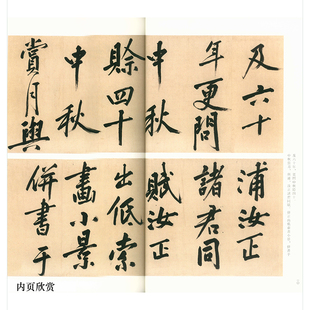 及六十
年更問
中秋
賒四十
中秋
賞月與
浦汝正
諸君同
賦汝正
出紙索
畫小景
併書于
内页欣赏